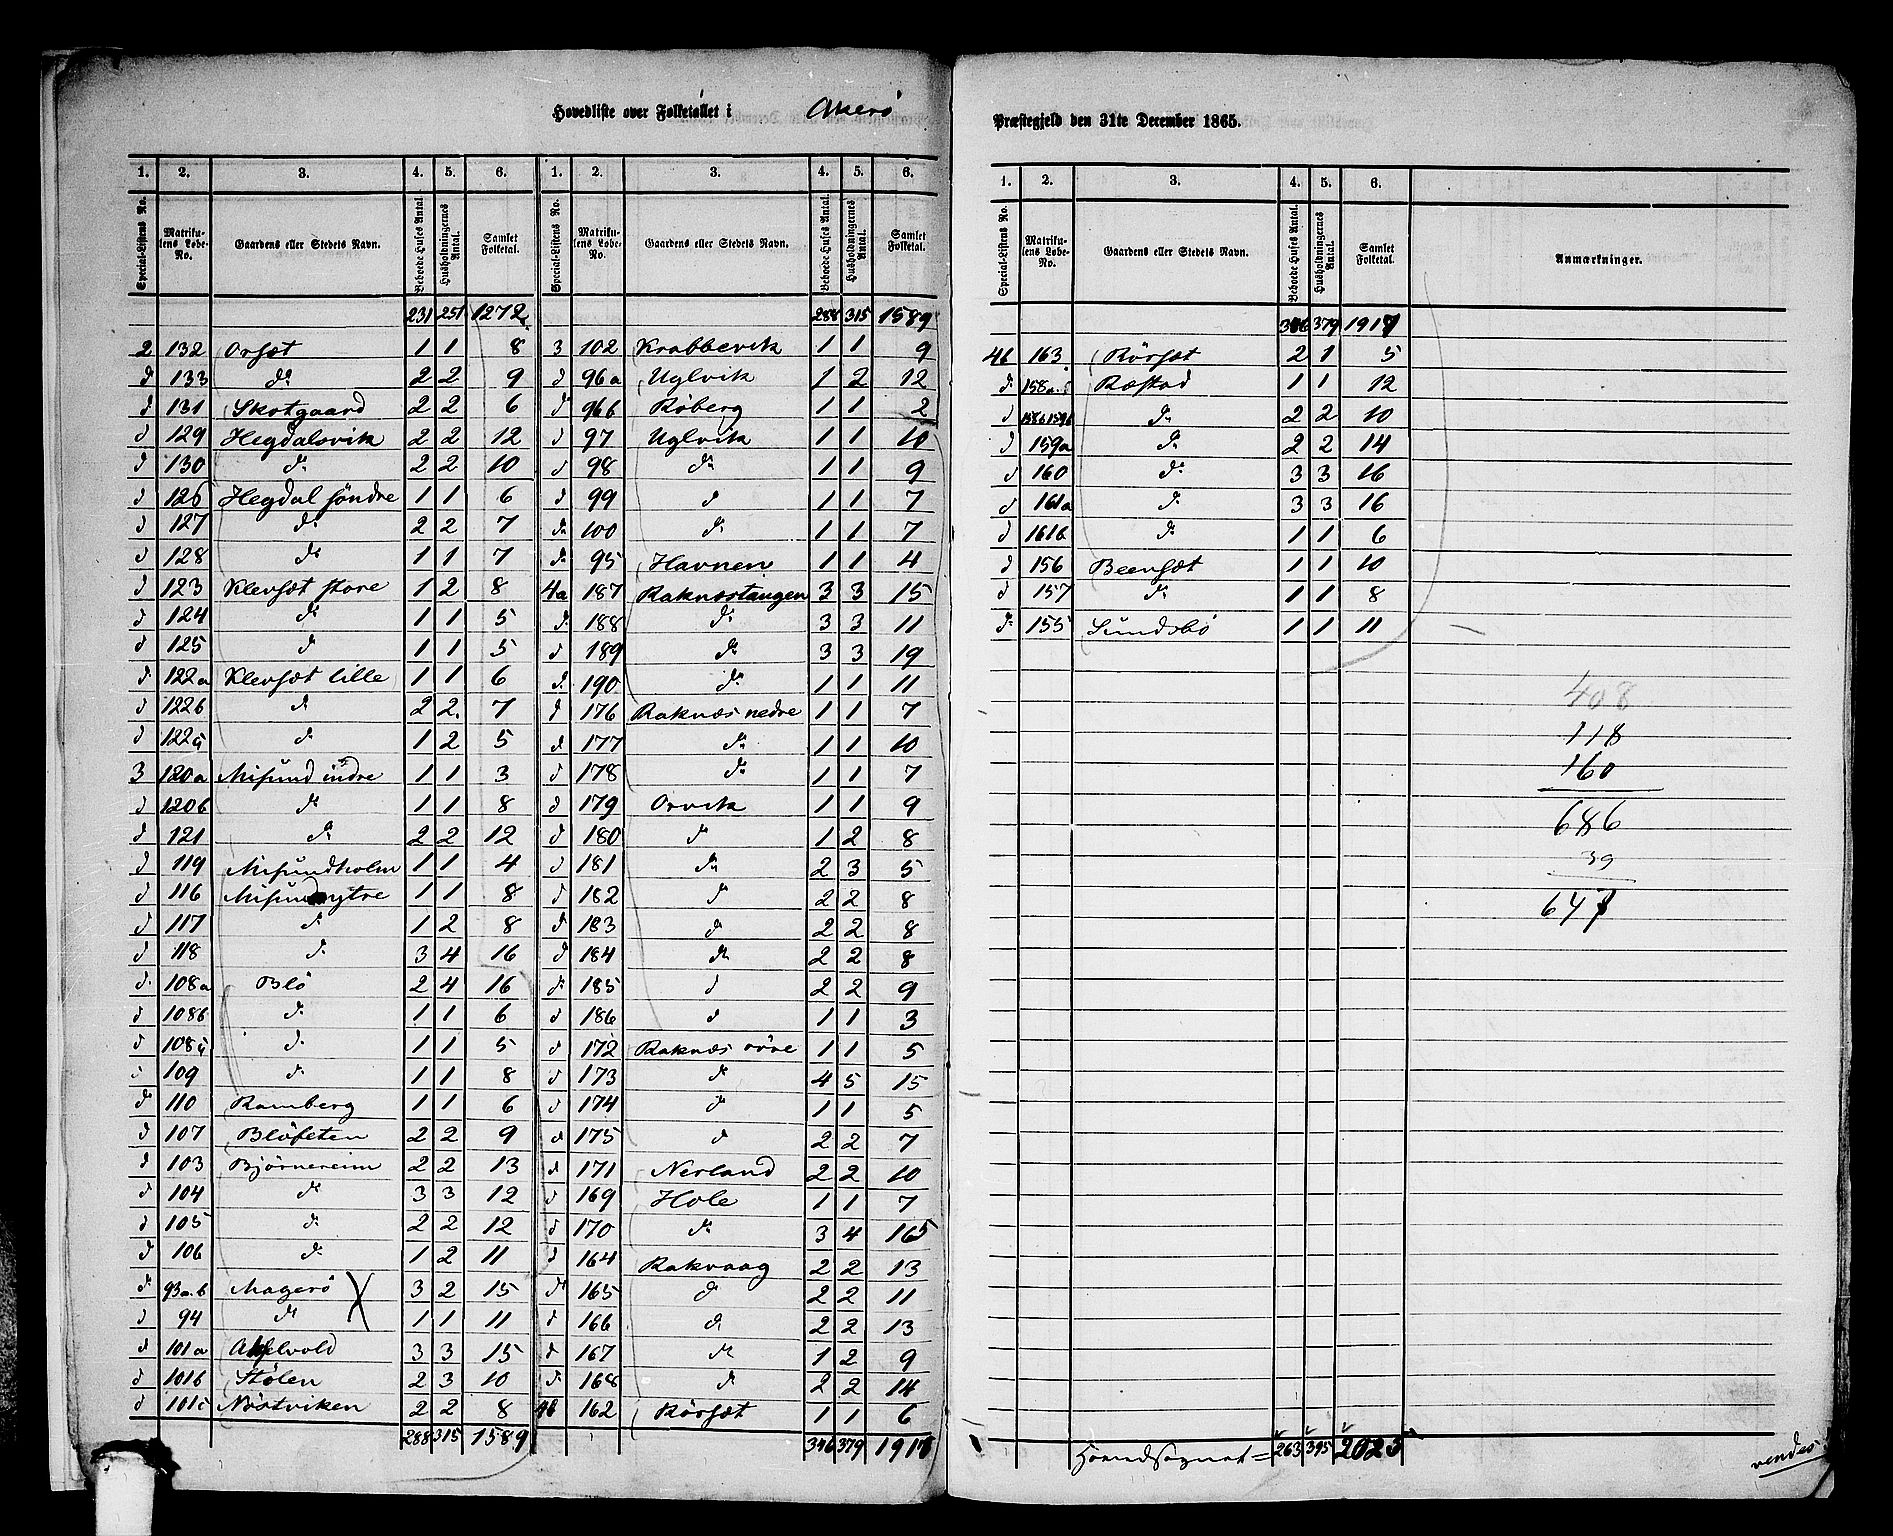 Hovedliste over Folketallet i Akerø
Præstegjeld den 31te December 1865.
1. 2. 3. 4. 5. 6. 1. 2. 3. 4. 5. 6.
Special-Listens No. Matrikulens Løbe-No. Gaardens eller Stedets Navn. Beboede Huses Antal. Husholdningernes Antal. Samlet Folketal. Special-Listens No. Matrikulens Løbe-No. Gaardens eller Stedets Navn. Beboede Huses Antal. Husholdningernes Antal. Samlet Folketal.
231 251 1272
2 132 Orsæt 1 1 8
d 133 do 2 2 9
d 131 Skotgaard 2 2 6
d 129 Hegdalsvik 2 2 12
d 130 d. 2 2 10
d 126 Hegdal søndre 1 1 6
d 127 d. 2 2 7
d 128 do 1 1 7
d 123 Klevsæt store 1 2 8
d 124 do 1 1 5
d 125 d 1 1 5
d. 122a Klevsæt lille 1 1 6
d 122b d. 2 2. 7
d 122c d. 1 2 5
3 120a Misund indre 1 1 3
d 120b do 1 1 8
d 121 do 2 2 12
d 119 Misundholm 1 1 4
d 116 Misund ytre 1 1 8
d 117 d. 1 2 8
d 118 d. 3 4 16
d. 108a Blø 2 4 16
d 108b d. 1 1 6
d 108c d. 1 1 5
d 109 d. 1 1 8
d. 110 Ramberg 1 1 6
d 107 Bløfeten 2 2 9
d 103 Bjørnereim 2 2 13
d. 104 do 3 3 12
d 105 d. 2 2 12
d. 106 d. 1 2 11
d. 93a.b Magerø 3 2 15
d 94 do 1 1 11
d 101a Akselvold 3 3 15
d 101b Stølen 2 3 10
d 101c Nøstviken 2 2 8
288 315 1589
288 315 1589
3 102 Krabbevik 1 1 9
d 96a Uglvik 1 2 12
d. 96b Røberg 1 1 2
d 97 Uglvik 1 1 10
d 98 do 1 1 9
d 99 d 1 1 7
d. 100 d. 1 1 7
d. 95 Havnen 1 1 4
4a 187 Raknæstangen 3 3 15
d. 188 d. 3 3 11
d 189 do 3 3 19
d. 190 do 1 1 11
d 176 Raknæs nedre 1 1 7
d. 177 do 1 1 10
d 178 do 1 1 7
d 179 Orvik 1 1 9
d 180 d. 1 2 8
d 181 do 2 3 5
d 182 d 2 2 8
d. 183 d 2 2 8
d 184 do 2 2 8
d. 185 d 2 2 9
d 186 d 1 1 3
d 172 Raknæs øvre 1 1 5
d 173 do 4 5 15
d 174 do 1 1 5
d 175 d 2 2 7
d. 171 Nerland 2 2 10
d 169 Hole 1 1 7
d 170 do 3 4 165
d 164 Rakvaag 2 2 13
d. 165 d. 2 2 11
d 166 d. 2 2 13
d. 167 do 1 2 9
d. 168 d. 2 2 14
4b 162 Rørsæt 1 1 6
346 379
1. 2. 3. 4. 5. 6.
Special-Listens No. Matrikulens Løbe-No. Gaardens eller Stedets Navn. Beboede Huses Antal. Husholdningernes Antal. Samlet Folketal. Anmærkninger.
379
4b 163 Rørsæt 2 1 5
d. Ræstad 1 1 12
d d. 2 2 10
d 159a d. 2 2 14
d 160 do 3 3 16
d 161a d. 3 3 16
d 161b d. 1 1 6
d 156 Beensæt 1 1 10
d 157 do 1 1 8
d. 155 Sundsbø 1 1 11
408
118
160
686
39
647
Hovedsognet = 263 395 2025
vendes